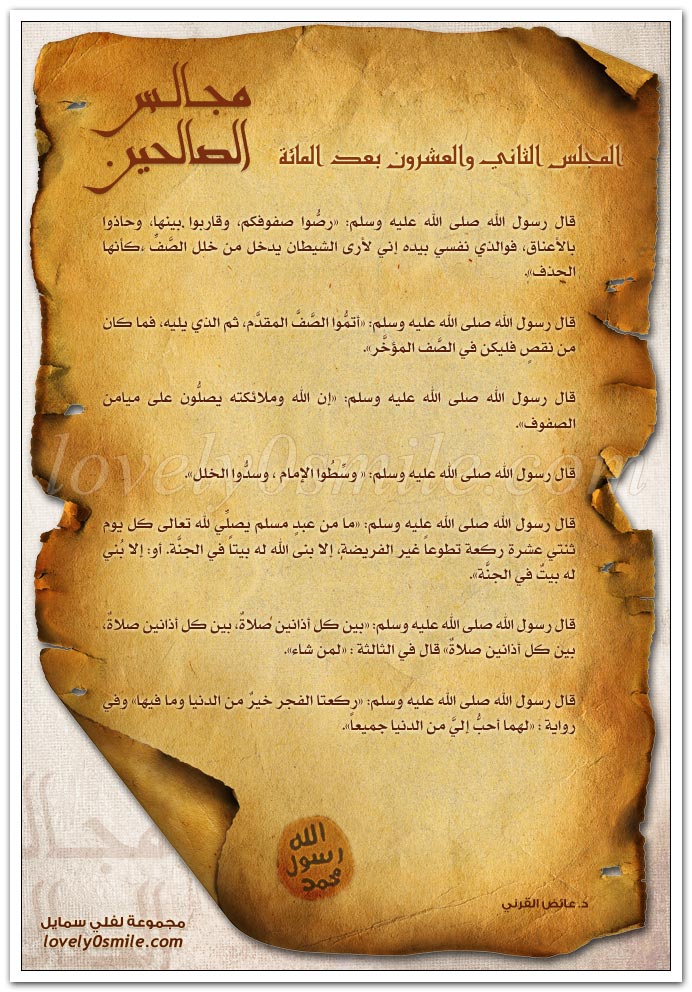 مجالس
الصالحين
المجلس الثاني والعشرون بعد المائة
قال رسول الله صلى الله عليه وسلم: «رصُّوا صفوفكم، وقاربوا بينها، وحاذوا
بالأعناق، فوالذي نفسي بيده إني لأرى الشيطان يدخل من خلل الصَّفِّ ،كأنها
الحذف».
قال رسول الله صلى الله عليه وسلم: «أتمُّوا الصَّفَّ المقدَّم، ثم الذي يليه، فما كان
من نقصٍ فليكن في الصَّف المؤخَّر».
قال رسول الله صلى الله عليه وسلم: «إن الله وملائكته يصلُّون على ميامن
الصفوف».
قال رسول الله صلى الله عليه وسلم: « وسِّطُوا الإمام ، وسدُّوا الخلل».
lovely0smile.com
قال رسول الله صلى الله عليه وسلم: «ما من عبدٍ مسلم يصلِّي لله تعالى كل يوم
ثنتي عشرة ركعة تطوعاً غير الفريضةِ، إلا بنى الله له بيتاً في الجنَّة. أو: إلا بُني
له بيتٌ في الجنَّة».
قال رسول الله صلى الله عليه وسلم: «بين كل أذانين صلاةٌ، بين كل أذانين صلاةٌ،
بين كل أذانين صلاةٌ» قال في الثالثة : «لمن شاء».
قال رسول الله صلى الله عليه وسلم: «ركعتا الفجر خيرٌ من الدنيا وما فيها» وفي
رواية : «لهما أحبُّ إليَّ من الدنيا جميعاً».
الله
رسول
محمد
د.عائض القرني
مجموعة لفلي سمايل
lovely0smile.com